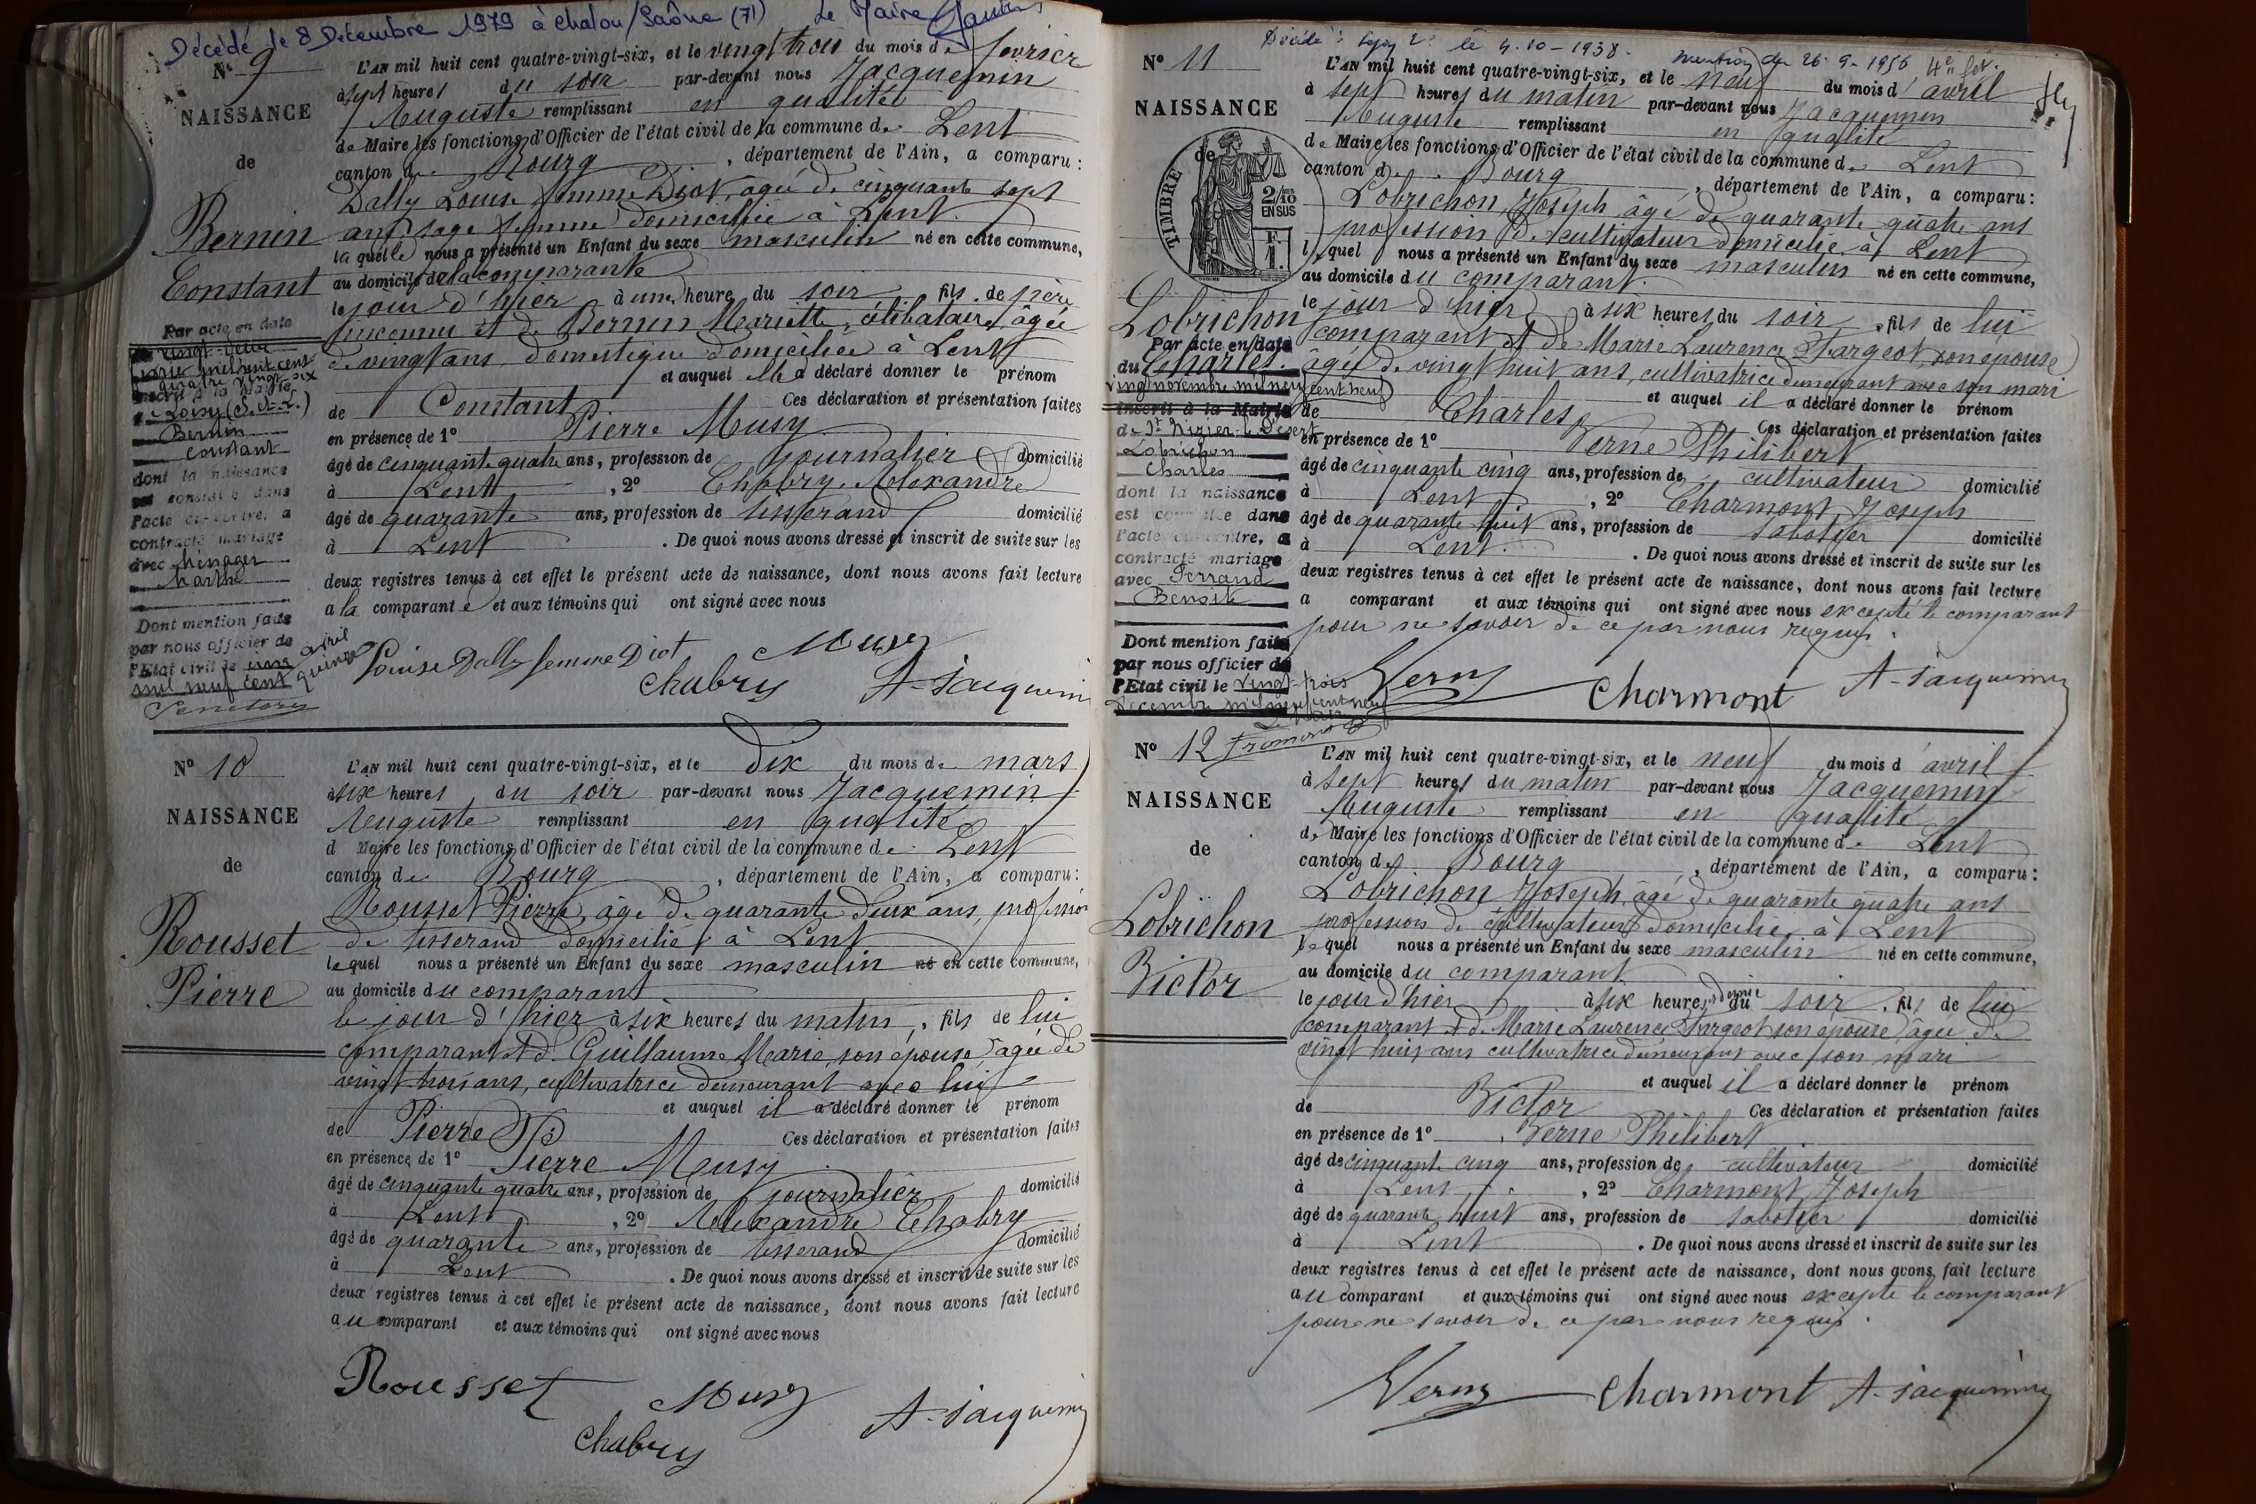 Décédé le 8 Decembre 1979 à Chalon/Saône (71) Le Maire
N° 9
NAISSANCE
de
Bernin
Constant
Par acte en date
vingt-deux
mil huit cent
quatre vingt six
inscrit à la Mairie
Loisy (S.-et-L.)
Bernin
Constant
dont la naissance
est constatée dans
l'acte ci-contre, a
contracté mariage
avec Ménager
Marthe
Dont mention faite
par nous officier de
l'Etat civil le cinq avril
mil neuf cent quinze
L'AN mil huit cent quatre-vingt-six, et le vingt trois du mois de fevrier
à sept heures du soir par-devant nous Jacquemin
Auguste remplissant en qualité
de Maire les fonctions d'Officier de l'état civil de la commune de Lent
canton de Bourg, département de l'Ain, a comparu :
Dally Louise femme Diot, âgée de cinquante sept
ans sage femme domiciliée à Lent.
laquelle nous a présenté un Enfant du sexe masculin né en cette commune,
au domicile de la comparante
le jour d'hier à une heure du soir, fils de père
inconnu et de Bernin Mariette, célibataire, âgée
de vingt ans domestique domiciliée à Lent
et auquel elle a déclaré donner le prénom
de Constant Ces déclaration et présentation faites
en présence de 1° Pierre Musy
âgé de cinquante quatre ans, profession de journalier domicilié
à Lent, 2° Chabry Alexandre
âgé de quarante ans, profession de tisserand domicilié
à Lent. De quoi nous avons dressé et inscrit de suite sur les
deux registres tenus à cet effet le présent acte de naissance, dont nous avons fait lecture
a la comparante et aux témoins qui ont signé avec nous
Louise Dally femme Diot Musy
Chabry A. Jacquemin
N° 10
NAISSANCE
de
Rousset
Pierre
L'AN mil huit cent quatre-vingt-six, et le dix du mois de mars
à six heures du soir par-devant nous Jacquemin
Auguste remplissant en qualité
d Maire les fonctions d'Officier de l'état civil de la commune de Lent
canton de Bourg, département de l'Ain, a comparu :
Rousset Pierre, âgé de quarante deux ans, profession
de tisserand domicilié à Lent
lequel nous a présenté un Enfant du sexe masculin né en cette commune,
au domicile du comparant
le jour d'hier à six heures du matin, fils de lui
comparant et de Guillaume Marie son épouse âgée de
vingt trois ans, cultivatrice demeurant avec lui
et auquel il a déclaré donner le prénom
de Pierre Ces déclaration et présentation faites
en présence de 1° Pierre Musy
âgé de cinquante quatre ans, profession de journalier domicilié
à Lent, 2° Alexandre Chabry
âgé de quarante ans, profession de tisserand domicilié
à Lent. De quoi nous avons dressé et inscrit de suite sur les
deux registres tenus à cet effet le présent acte de naissance, dont nous avons fait lecture
au comparant et aux témoins qui ont signé avec nous
Rousset Musy
Chabry A. Jacquemin
Décédé à Lyon 2e le 4-10-1938. mention du 26-9-1956
N° 11
NAISSANCE
de
TIMBRE
2/10 EN SUS
F. 1.
Lobrichon
Charles
Par acte en date
du vingt novembre mil neuf cent neuf
inscrit à la Mairie
de St Nizier-le-Désert
Lobrichon
Charles
dont la naissance
est constatée dans
l'acte ci-contre, a
contracté mariage
avec Ferrand
Benoite
Dont mention faite
par nous officier de
l'Etat civil le vingt-trois
Decembre mil neuf cent neuf
L'AN mil huit cent quatre-vingt-six, et le neuf du mois d'avril
à sept heures du matin par-devant nous Jacquemin
Auguste remplissant en qualité
de Maire les fonctions d'Officier de l'état civil de la commune de Lent
canton de Bourg, département de l'Ain, a comparu :
Lobrichon Joseph, âgé de quarante quatre ans
profession de cultivateur domicilié à Lent
lequel nous a présenté un Enfant du sexe masculin né en cette commune,
au domicile du comparant.
le jour d'hier à six heures du soir, fils de lui
comparant et de Marie Laurence Fargeot, son épouse
âgée de vingt huit ans, cultivatrice demeurant avec son mari
et auquel il a déclaré donner le prénom
de Charles Ces déclaration et présentation faites
en présence de 1° Verne Philibert
âgé de cinquante cinq ans, profession de cultivateur domicilié
à Lent, 2° Charmont Joseph
âgé de quarante huit ans, profession de sabotier domicilié
à Lent. De quoi nous avons dressé et inscrit de suite sur les
deux registres tenus à cet effet le présent acte de naissance, dont nous avons fait lecture
a comparant et aux témoins qui ont signé avec nous excepté le comparant
pour ne savoir de ce par nous requis.
Verne Charmont A. Jacquemin
N° 12
NAISSANCE
de
Lobrichon
Victor
L'AN mil huit cent quatre-vingt-six, et le neuf du mois d'avril
à sept heures du matin par-devant nous Jacquemin
Auguste remplissant en qualité
de Maire les fonctions d'Officier de l'état civil de la commune de Lent
canton de Bourg, département de l'Ain, a comparu :
Lobrichon Joseph, âgé de quarante quatre ans
profession de cultivateur domicilié à Lent
lequel nous a présenté un Enfant du sexe masculin né en cette commune,
au domicile du comparant
le jour d'hier à six heures et demie du soir, fils de lui
comparant et de Marie Laurence Fargeot son épouse âgée de
vingt huit ans cultivatrice demeurant avec son mari
et auquel il a déclaré donner le prénom
de Victor Ces déclaration et présentation faites
en présence de 1° Verne Philibert
âgé de cinquante cinq ans, profession de cultivateur domicilié
à Lent, 2° Charmont Joseph
âgé de quarante huit ans, profession de sabotier domicilié
à Lent. De quoi nous avons dressé et inscrit de suite sur les
deux registres tenus à cet effet le présent acte de naissance, dont nous avons fait lecture
au comparant et aux témoins qui ont signé avec nous excepté le comparant
pour ne savoir de ce par nous requis.
Verne Charmont A. Jacquemin